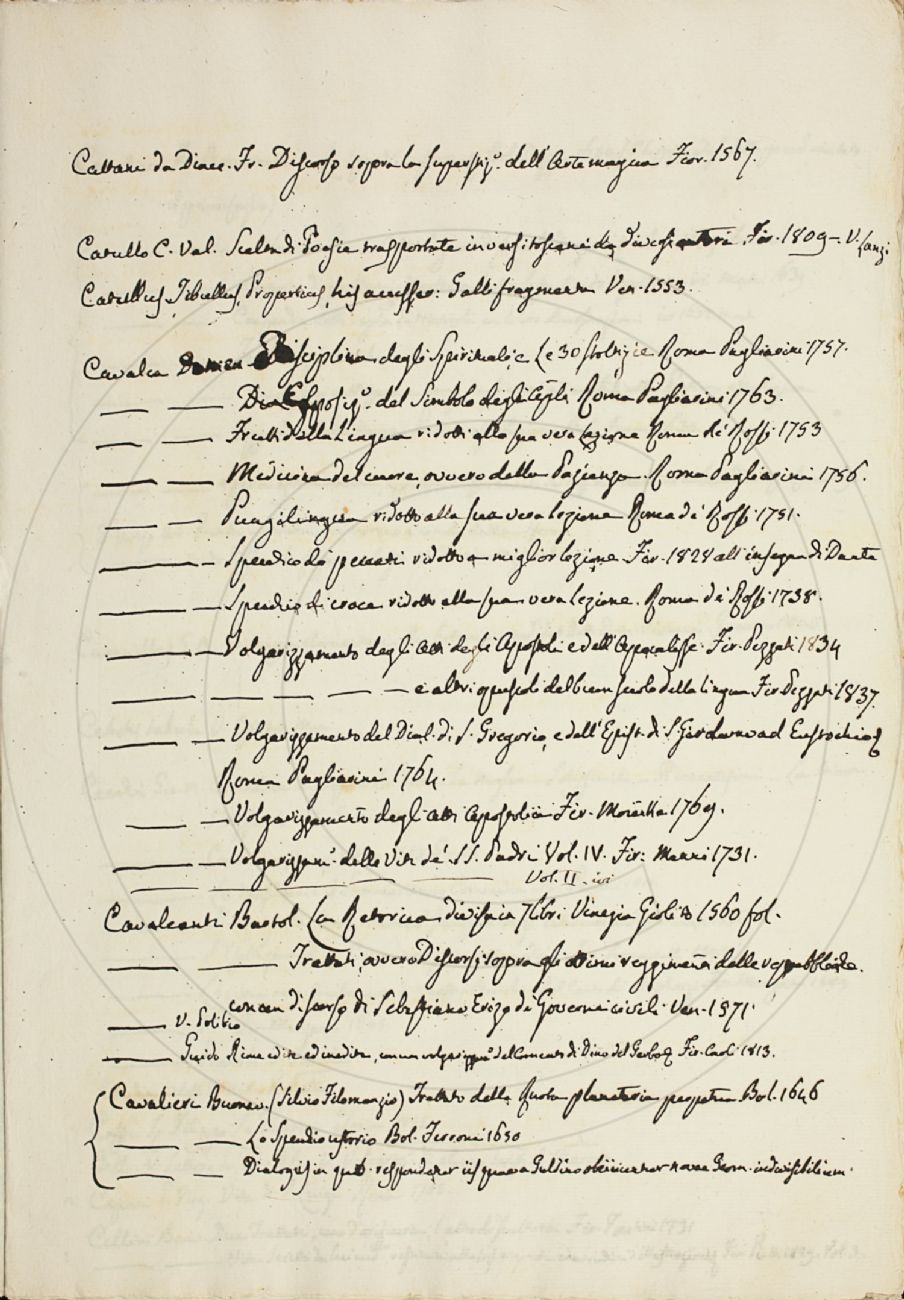 Cattani da Diacc. Fr. Discorso sopra la superstiz.e dell'Arte magica Fior. 1567.
Catullo C. Val. Scelta di Poesie trasportate in versi toscani da diversi autori Fir. 1809 – V. Sanz.
Catullus, Tibullus, Propertius, his accesser: Galli fragmenta Ven. 1553.
Cavalca Domen. Disciplina degli Spirituali, e le 30 stoltizie Roma Pagliarini 1757.
— — Esposiz.e del Simbolo degli Apli Roma Pagliarini 1763.
— — Frutti della Lingua ridotti alla sua vera lezione Roma de' Rossi 1753
— — Medicina del cuore, ovvero della Pazienza Roma Pagliarini 1756.
— — Pungilingua ridotto alla sua vera lezione Roma de' Rossi 1751.
— — Specchio de' peccati ridotto a miglior lezione Fir. 1828 all'insegna di Dante
— — Specchio di croce ridotto alla sua vera lezione. Roma de' Rossi 1738.
— — Volgarizzamento degli Atti degli Apostoli e dell'Apocalisse Fir. Pezzati 1834
— — — — — e altri opuscoli del buon secolo della lingua Fir. Pezzati 1837.
— — Volgarizzamento del Dial. di S. Gregorio, e dell'Epist. di S. Girolamo ad Eustochio
Roma Pagliarini 1764.
— — Volgarizzamento degli Atti Apostolici Fir. 1769.
— — Volgarizzam.o delle Vite de' SS. Padri Vol. IV. Fir: Manni 1731.
— — — — Vol. II. ivi
Cavalcanti Bartol. La Retorica divisa in 7 libri Vinegia Giolito 1560 fol.
— — Trattati, ovvero Discorsi sopra gli ottimi reggimenti delle repubbliche.
con un discorso di Sebastiano Erizo de' Governi civili Ven. 1571.
— V. Polibio
— Guido Rime edite ed inedite, con un volgarizz.o del Comento di Dino del Garbo Fir. Carli 1813.
Cavalieri Buonav. (Silvio Filomanzio) Trattato della Ruota planetaria perpetua Bol. 1646
— — Lo Specchio ustorio Bol. Ferroni 1650
— — respondetur iis quae a Guldino obiiciuntur novae Geom. indivisibilium.